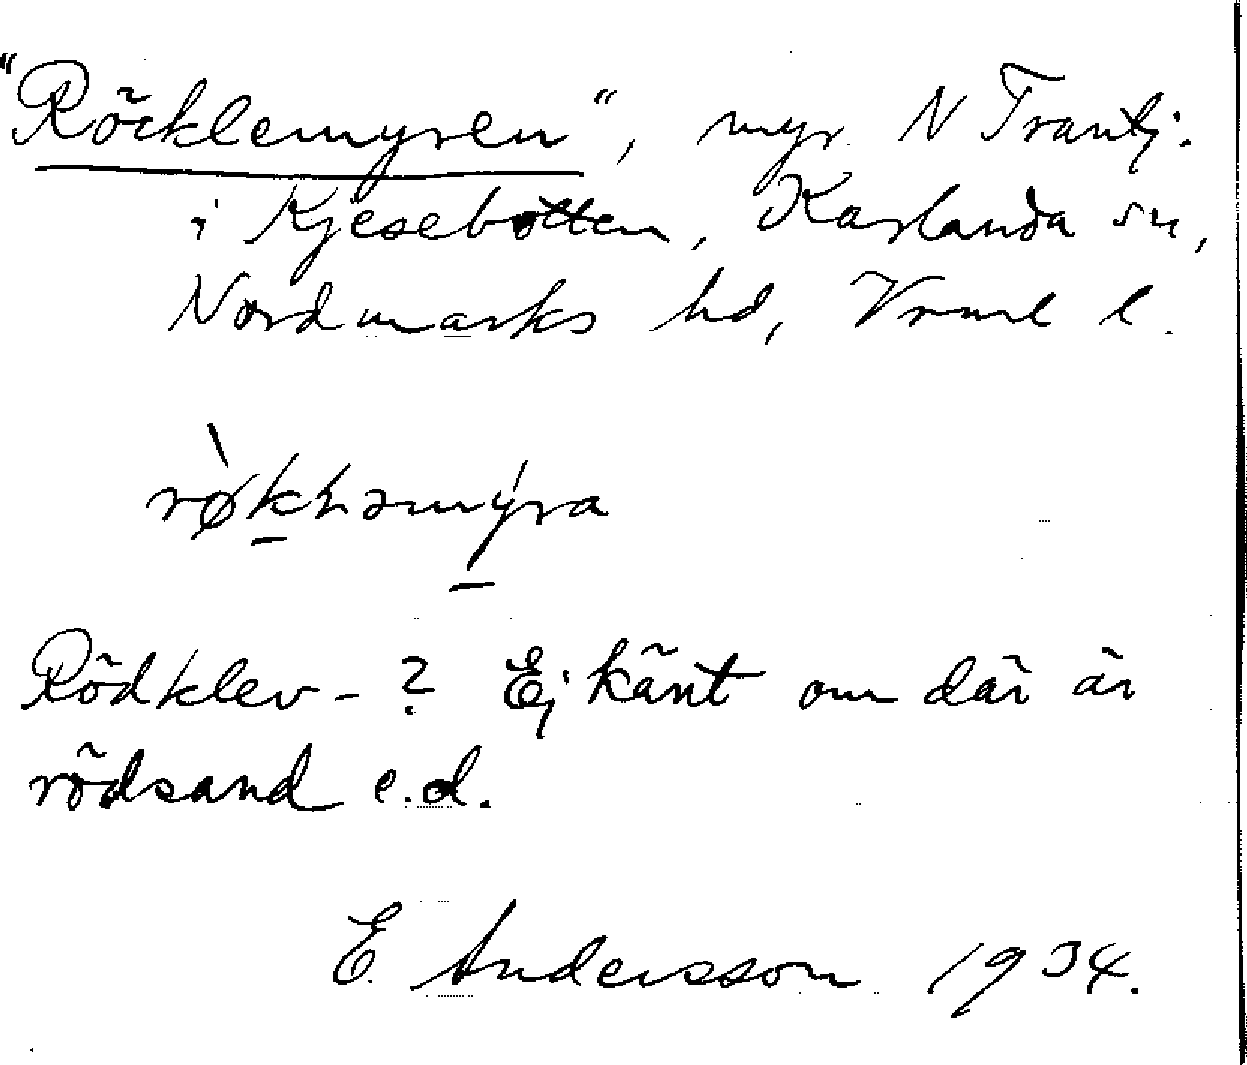 "Röcklemyren", myr N Trantj.
i Kjesebotten, Karlanda sn,
Nordmarks hd, Vrml l.
Rödklev- ? Ej känt om där är
rödsand e.d.
E. Andersson 1934.